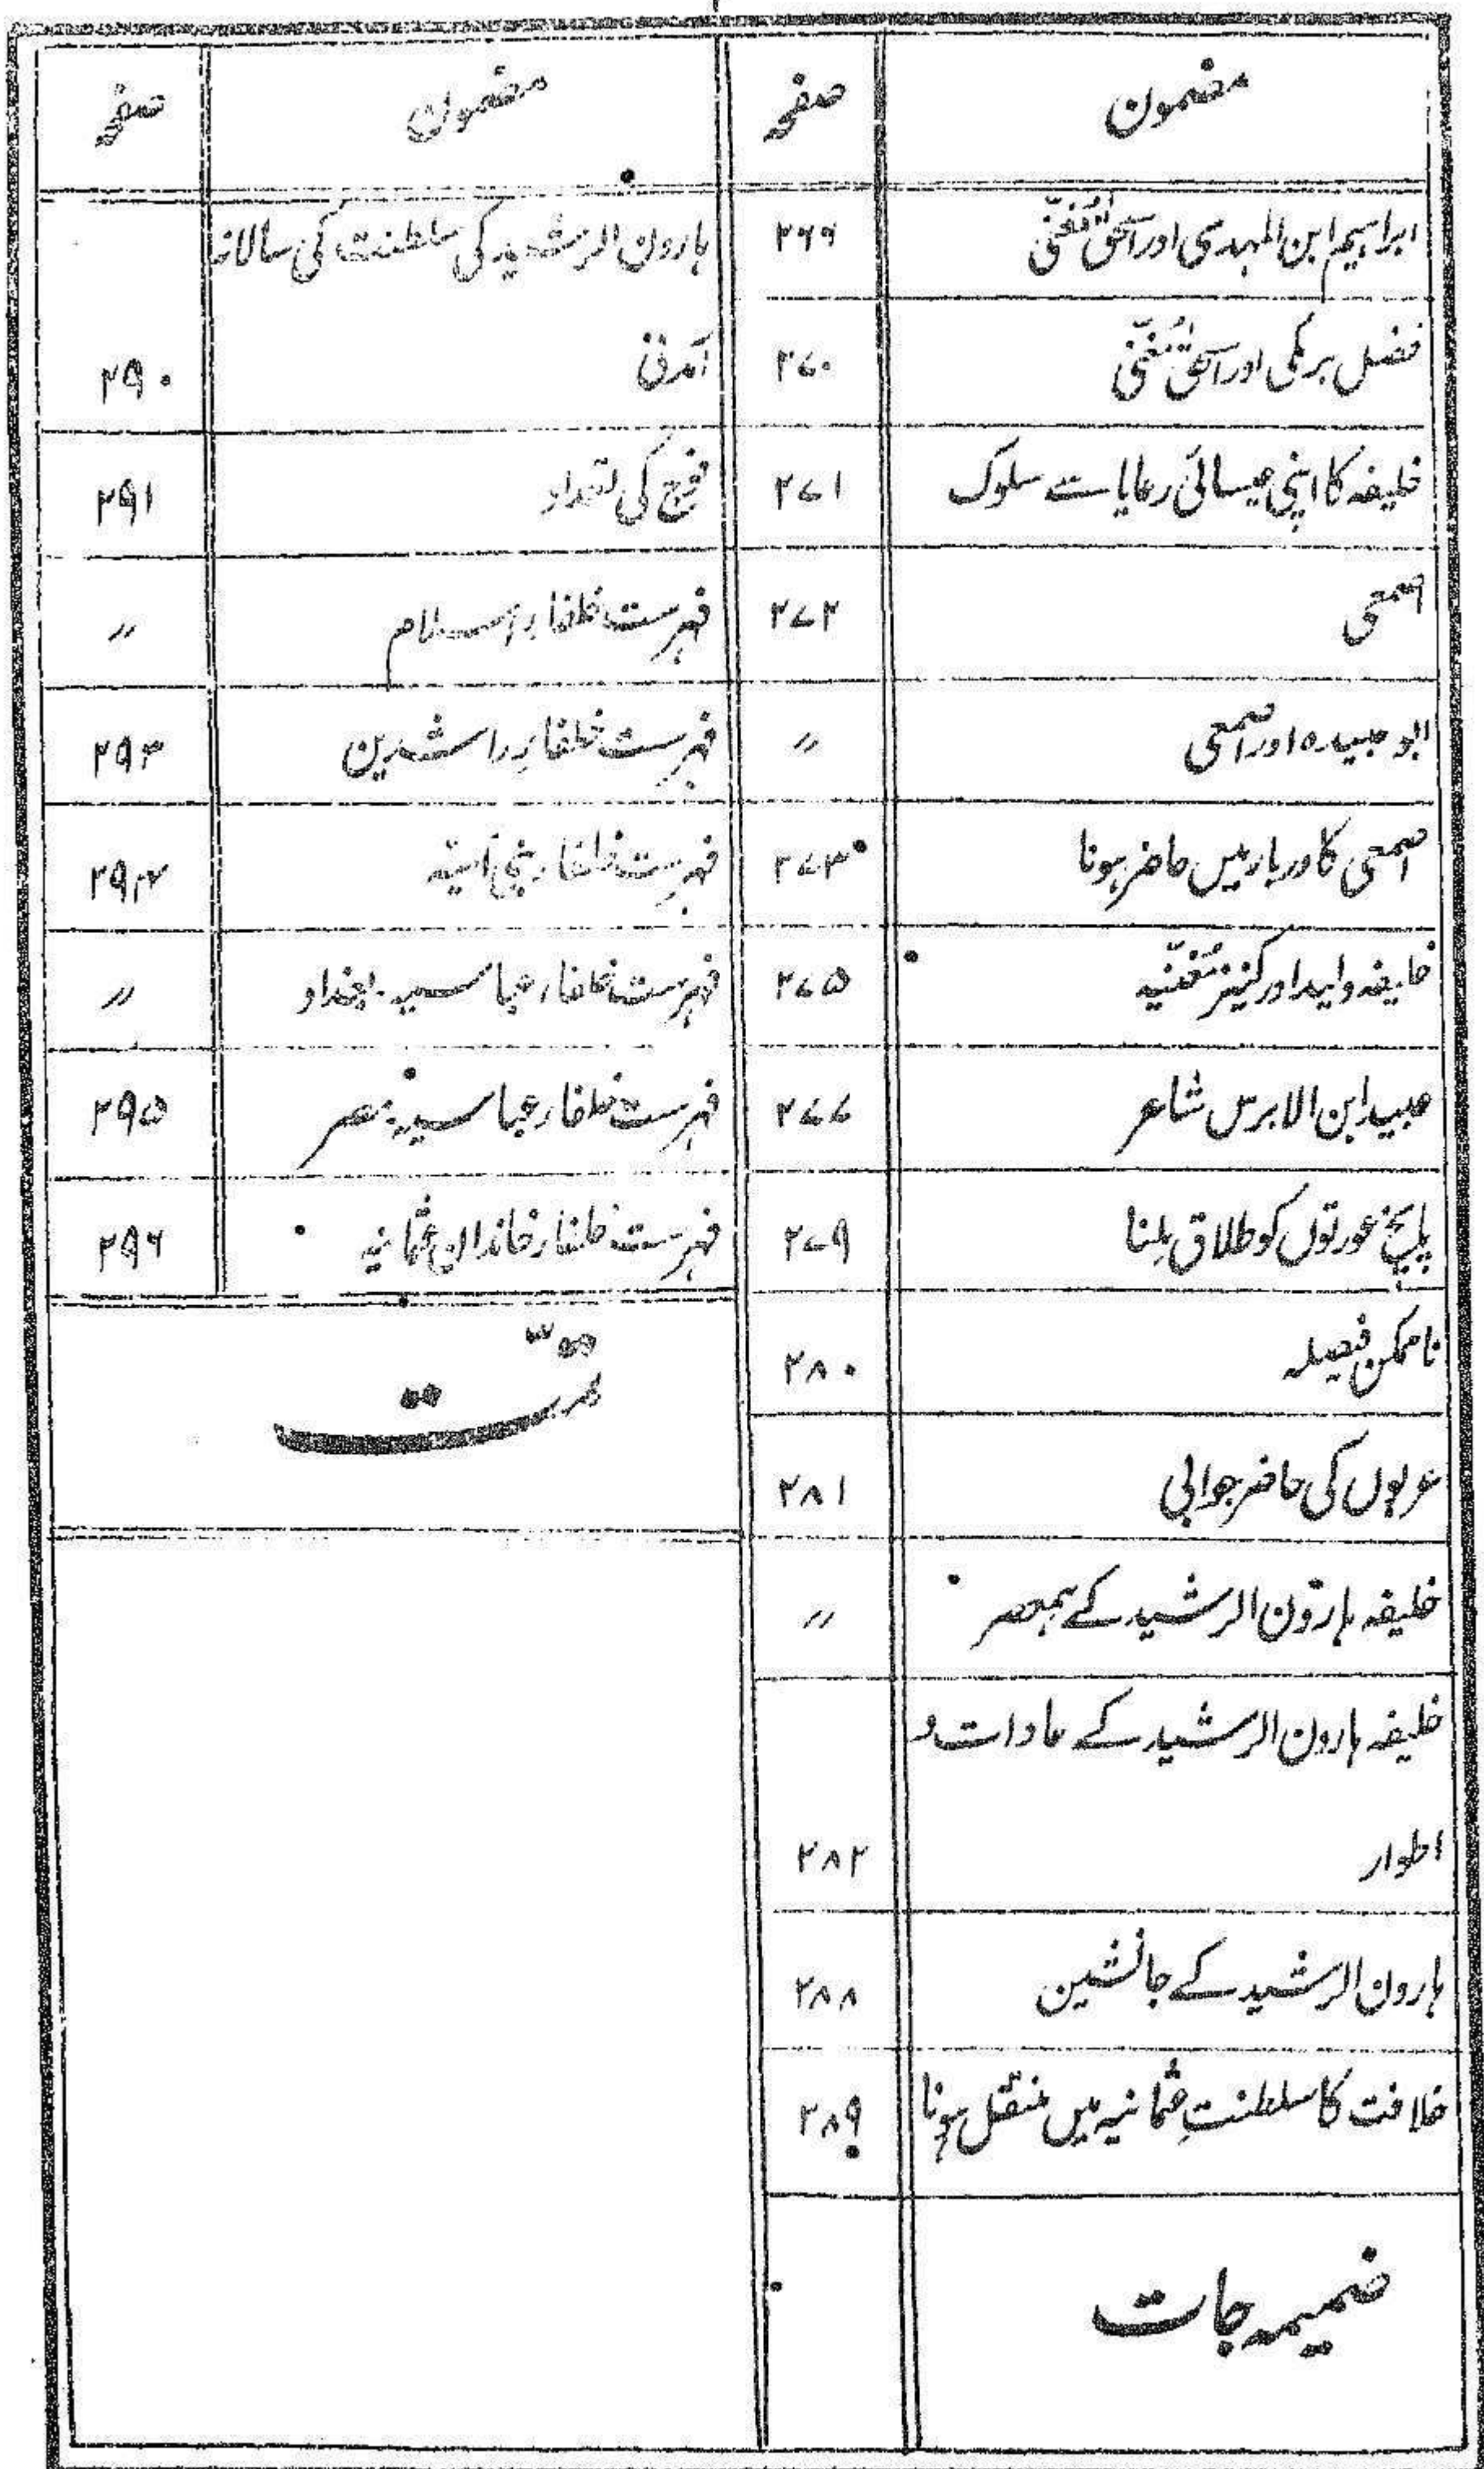 مضمون صفحہ
ابراہیم ابن المہدی اور اسحٰق مُغَنّی ۲۶۹
فضل برمکی اور اسحٰق مُغَنّی ۲۷۰
خلیفہ کا اپنی عیسائی رعایا سے سلوک ۲۷۱
اصمعی ۲۷۲
ابو عبیدہ اور اصمعی 〃
اصمعی کا دربار میں حاضر ہونا ۲۷۳
خلیفہ ولید اور کنیز مُغنّیہ ۲۷۵
عبید ابن الابرس شاعر ۲۷۷
پانچ عورتوں کو طلاق ملنا ۲۷۹
ناممکن فیصلہ ۲۸۰
عربوں کی حاضر جوابی ۲۸۱
خلیفہ ہارون الرشید کے ہمعصر 〃
خلیفہ ہارون الرشید کے عادات و
اطوار ۲۸۲
ہارون الرشید کے جانشین ۲۸۸
خلافت کا سلطنتِ عثمانیہ میں منتقل ہونا ۲۸۹
ضمیمہ جات
مضمون صفحہ
ہارون الرشید کی سلطنت کی سالانہ
آمدنی ۲۹۰
فوج کی تعداد ۲۹۱
فہرست خلفاء اسلام 〃
فہرست خلفاءِ راشدین ۲۹۳
فہرست خلفاء بنی اُمیّہ ۲۹۴
فہرست خلفاء عباسیہ بغداد 〃
فہرست خلفاء عباسیہ مصر ۲۹۵
فہرست خلفاء خاندان عثمانیہ ۲۹۶
تمّت